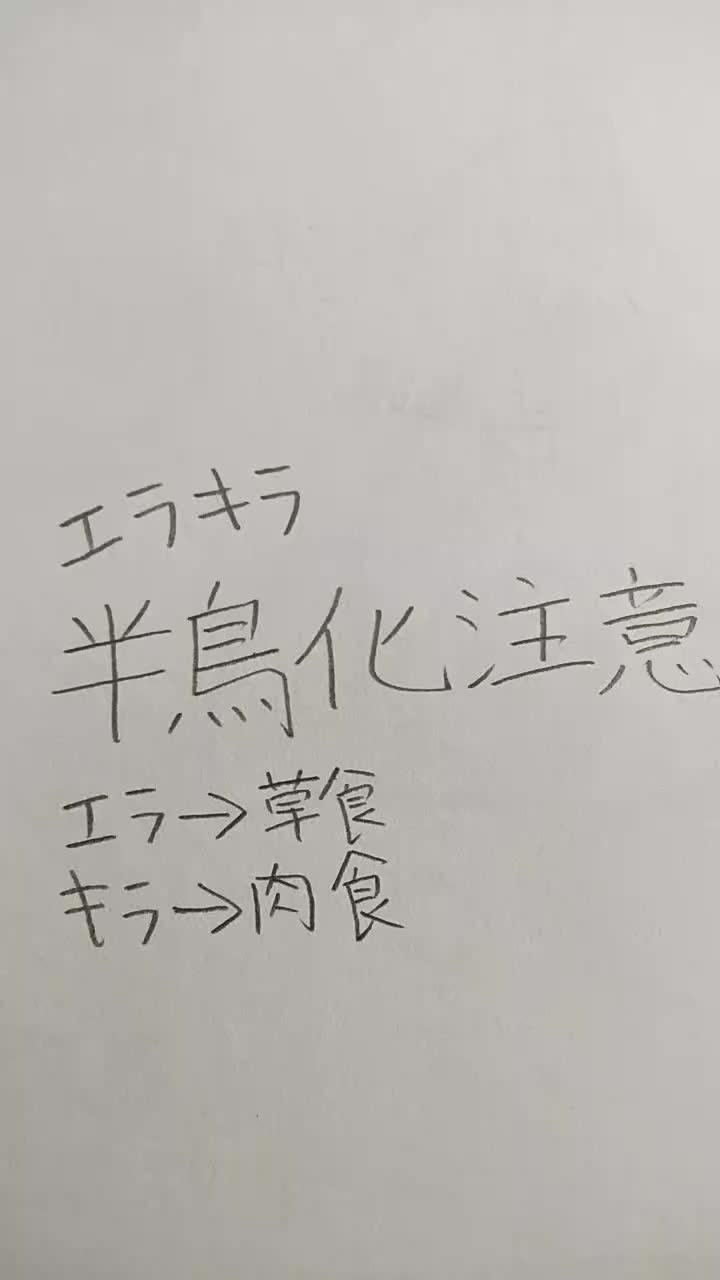 エラキラ
半鳥化注意
エラ→草食
キラ→肉食